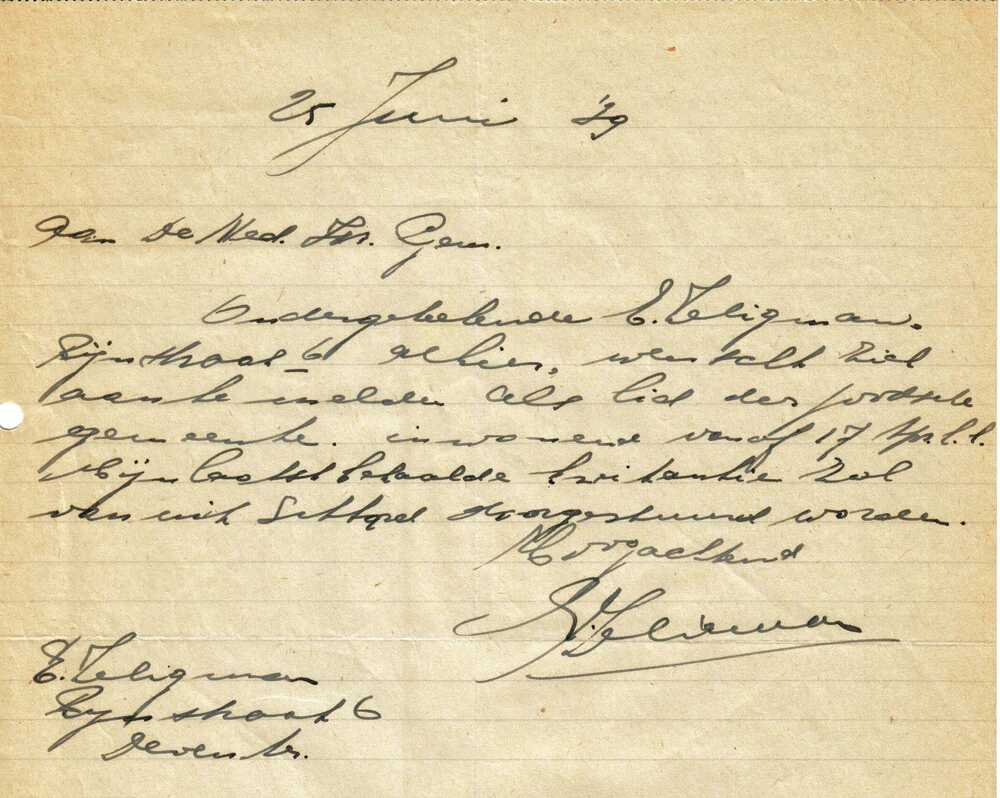 25 Juni '39
Aan De Ned. Isr. Gem.
Ondergetekende E. Zeligman.
Rijnstraat 6 alhier, wenscht zich
aan te melden als lid der joodsche
gemeente. inwonend vanaf 17 Apr. l.l.
Mijn laatst betaalde kwitantie zal
van uit Sittard doorgestuurd worden.
Hoogachtend
E. Zeligman
E. Zeligman
Rijnstraat 6
Deventer.